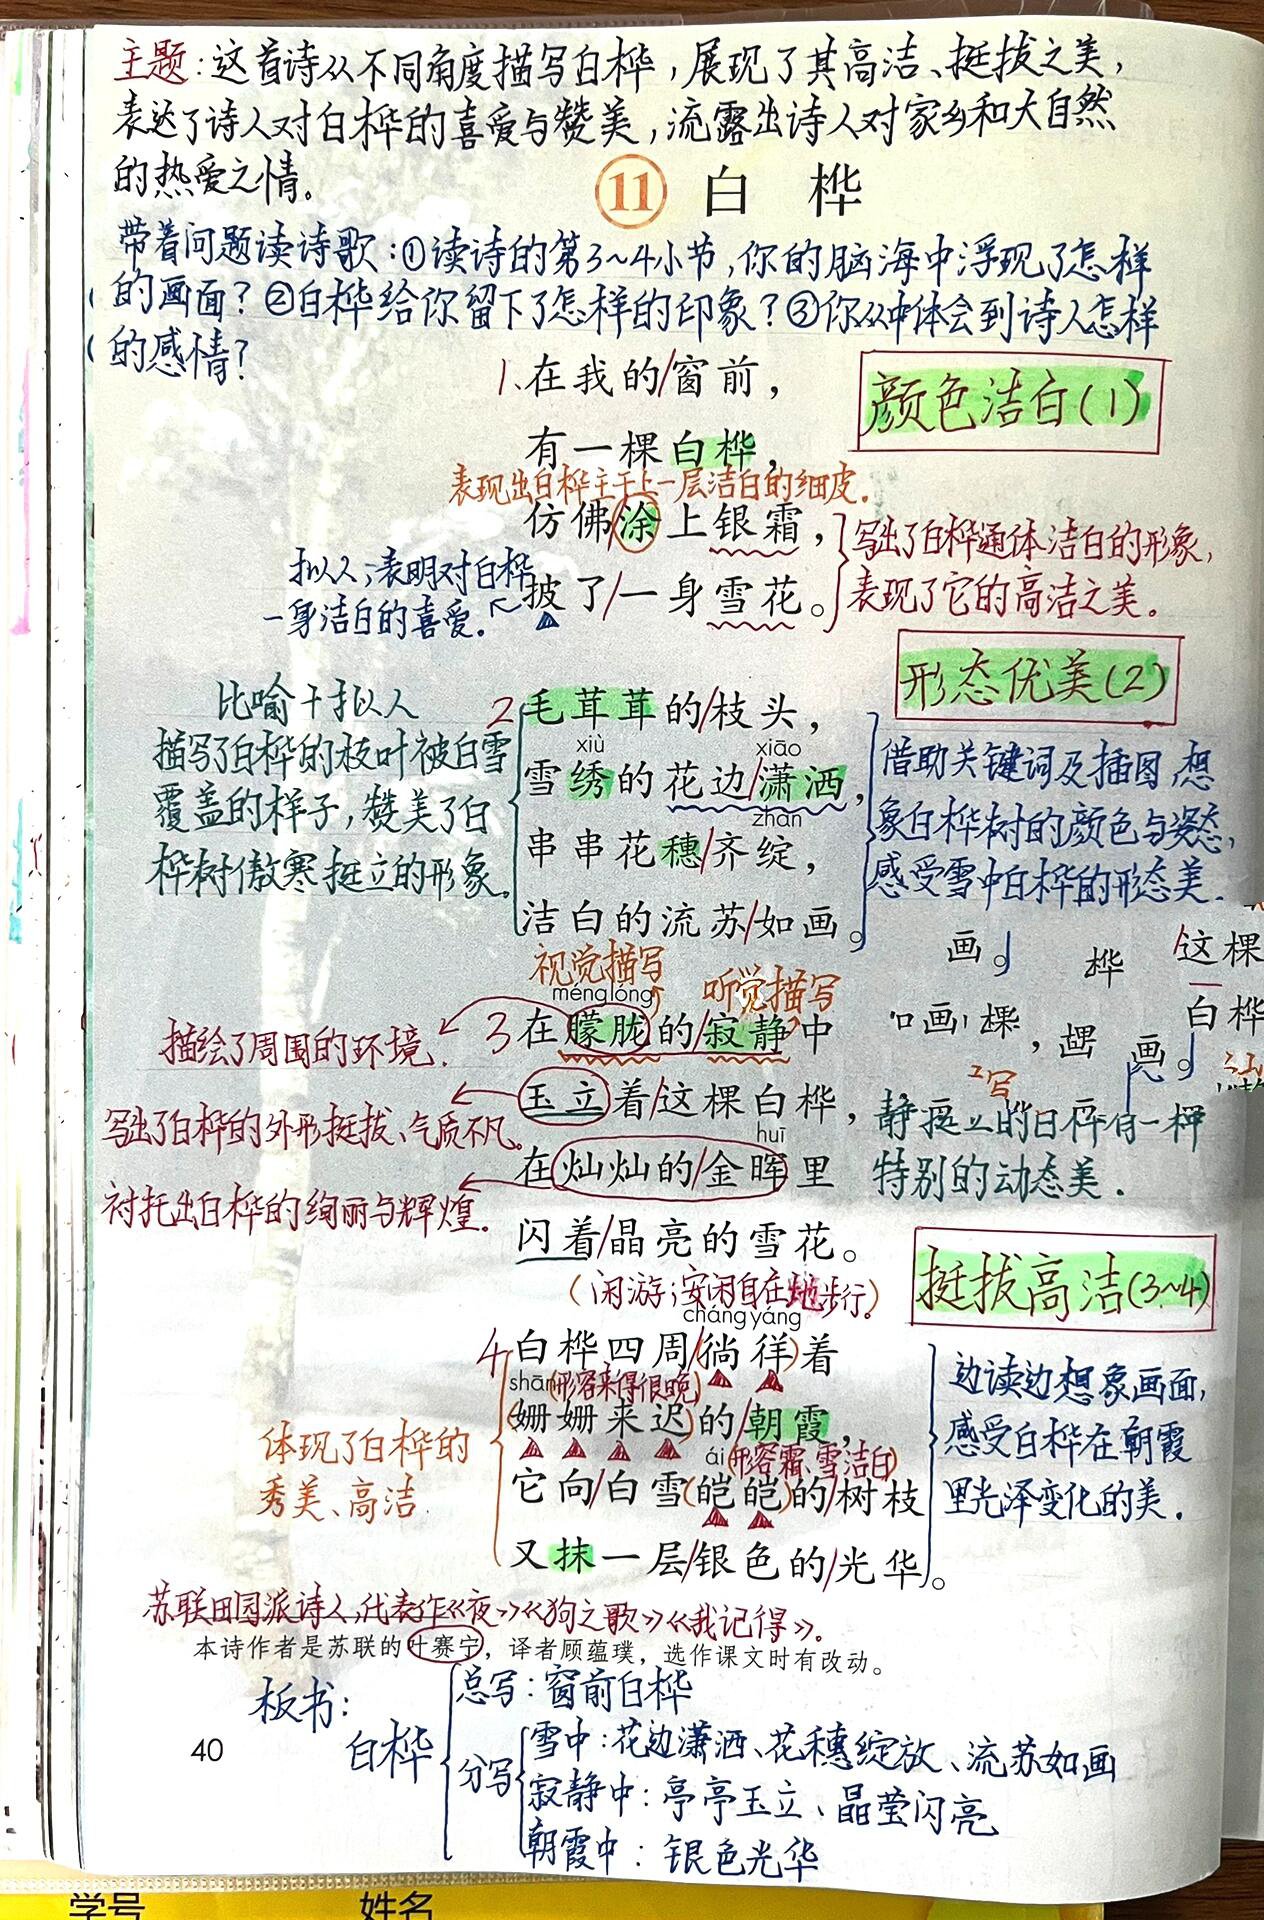 主题:这首诗从不同角度描写白桦,展现了其高洁、挺拔之美,
表达了诗人对白桦的喜爱与赞美,流露出诗人对家乡和大自然
的热爱之情。
11 白桦
带着问题读诗歌:①读诗的第3~4小节,你的脑海中浮现了怎样
的画面?②白桦给你留下了怎样的印象?③你从中体会到诗人怎样
的感情?
1、在我的/窗前,
颜色洁白(1)
有一棵白桦,
表现出白桦主干上一层洁白的细皮。
仿佛涂上银霜,
写出了白桦通体洁白的形象,
表现了它的高洁之美。
拟人;表明对白桦
一身洁白的喜爱。
披了/一身雪花。
形态优美(2)
比喻+拟人
描写了白桦的枝叶被白雪
覆盖的样子,赞美了白
桦树傲寒挺立的形象。
2 毛茸茸的/枝头,
xiù xiāo
雪绣的花边/潇洒,
zhàn
串串花穗/齐绽,
洁白的流苏/如画。
借助关键词及插图,想
象白桦树的颜色与姿态,
感受雪中白桦的形态美.
画。 桦 这棵
画 棵 , 画。 白桦
写
视觉描写 听觉描写
ménglóng
3 在朦胧的/寂静中
描绘了周围的环境.
玉立着/这棵白桦,
写出了白桦的外形挺拔、气质不凡。
huī
在灿灿的/金晖里
衬托出白桦的绚丽与辉煌.
特别的动态美.
闪着/晶亮的雪花。
挺拔高洁(3~4)
(闲游;安闲自在地步行)
cháng yáng
4 白桦四周/徜徉着
shān (形容来得很晚)
姗姗来迟的/朝霞,
ái (形容霜、雪洁白)
它向/白雪皑皑的/树枝
又抹一层/银色的/光华。
体现了白桦的
秀美、高洁
边读边想象画面,
感受白桦在朝霞
里光泽变化的美.
苏联田园派诗人,代表作《夜》《狗之歌》《我记得》。
本诗作者是苏联的叶赛宁,译者顾蕴璞,选作课文时有改动。
板书:
白桦
总写:窗前白桦
分写
雪中:花边潇洒、花穗绽放、流苏如画
寂静中:亭亭玉立、晶莹闪亮
朝霞中:银色光华
40
学号 姓名